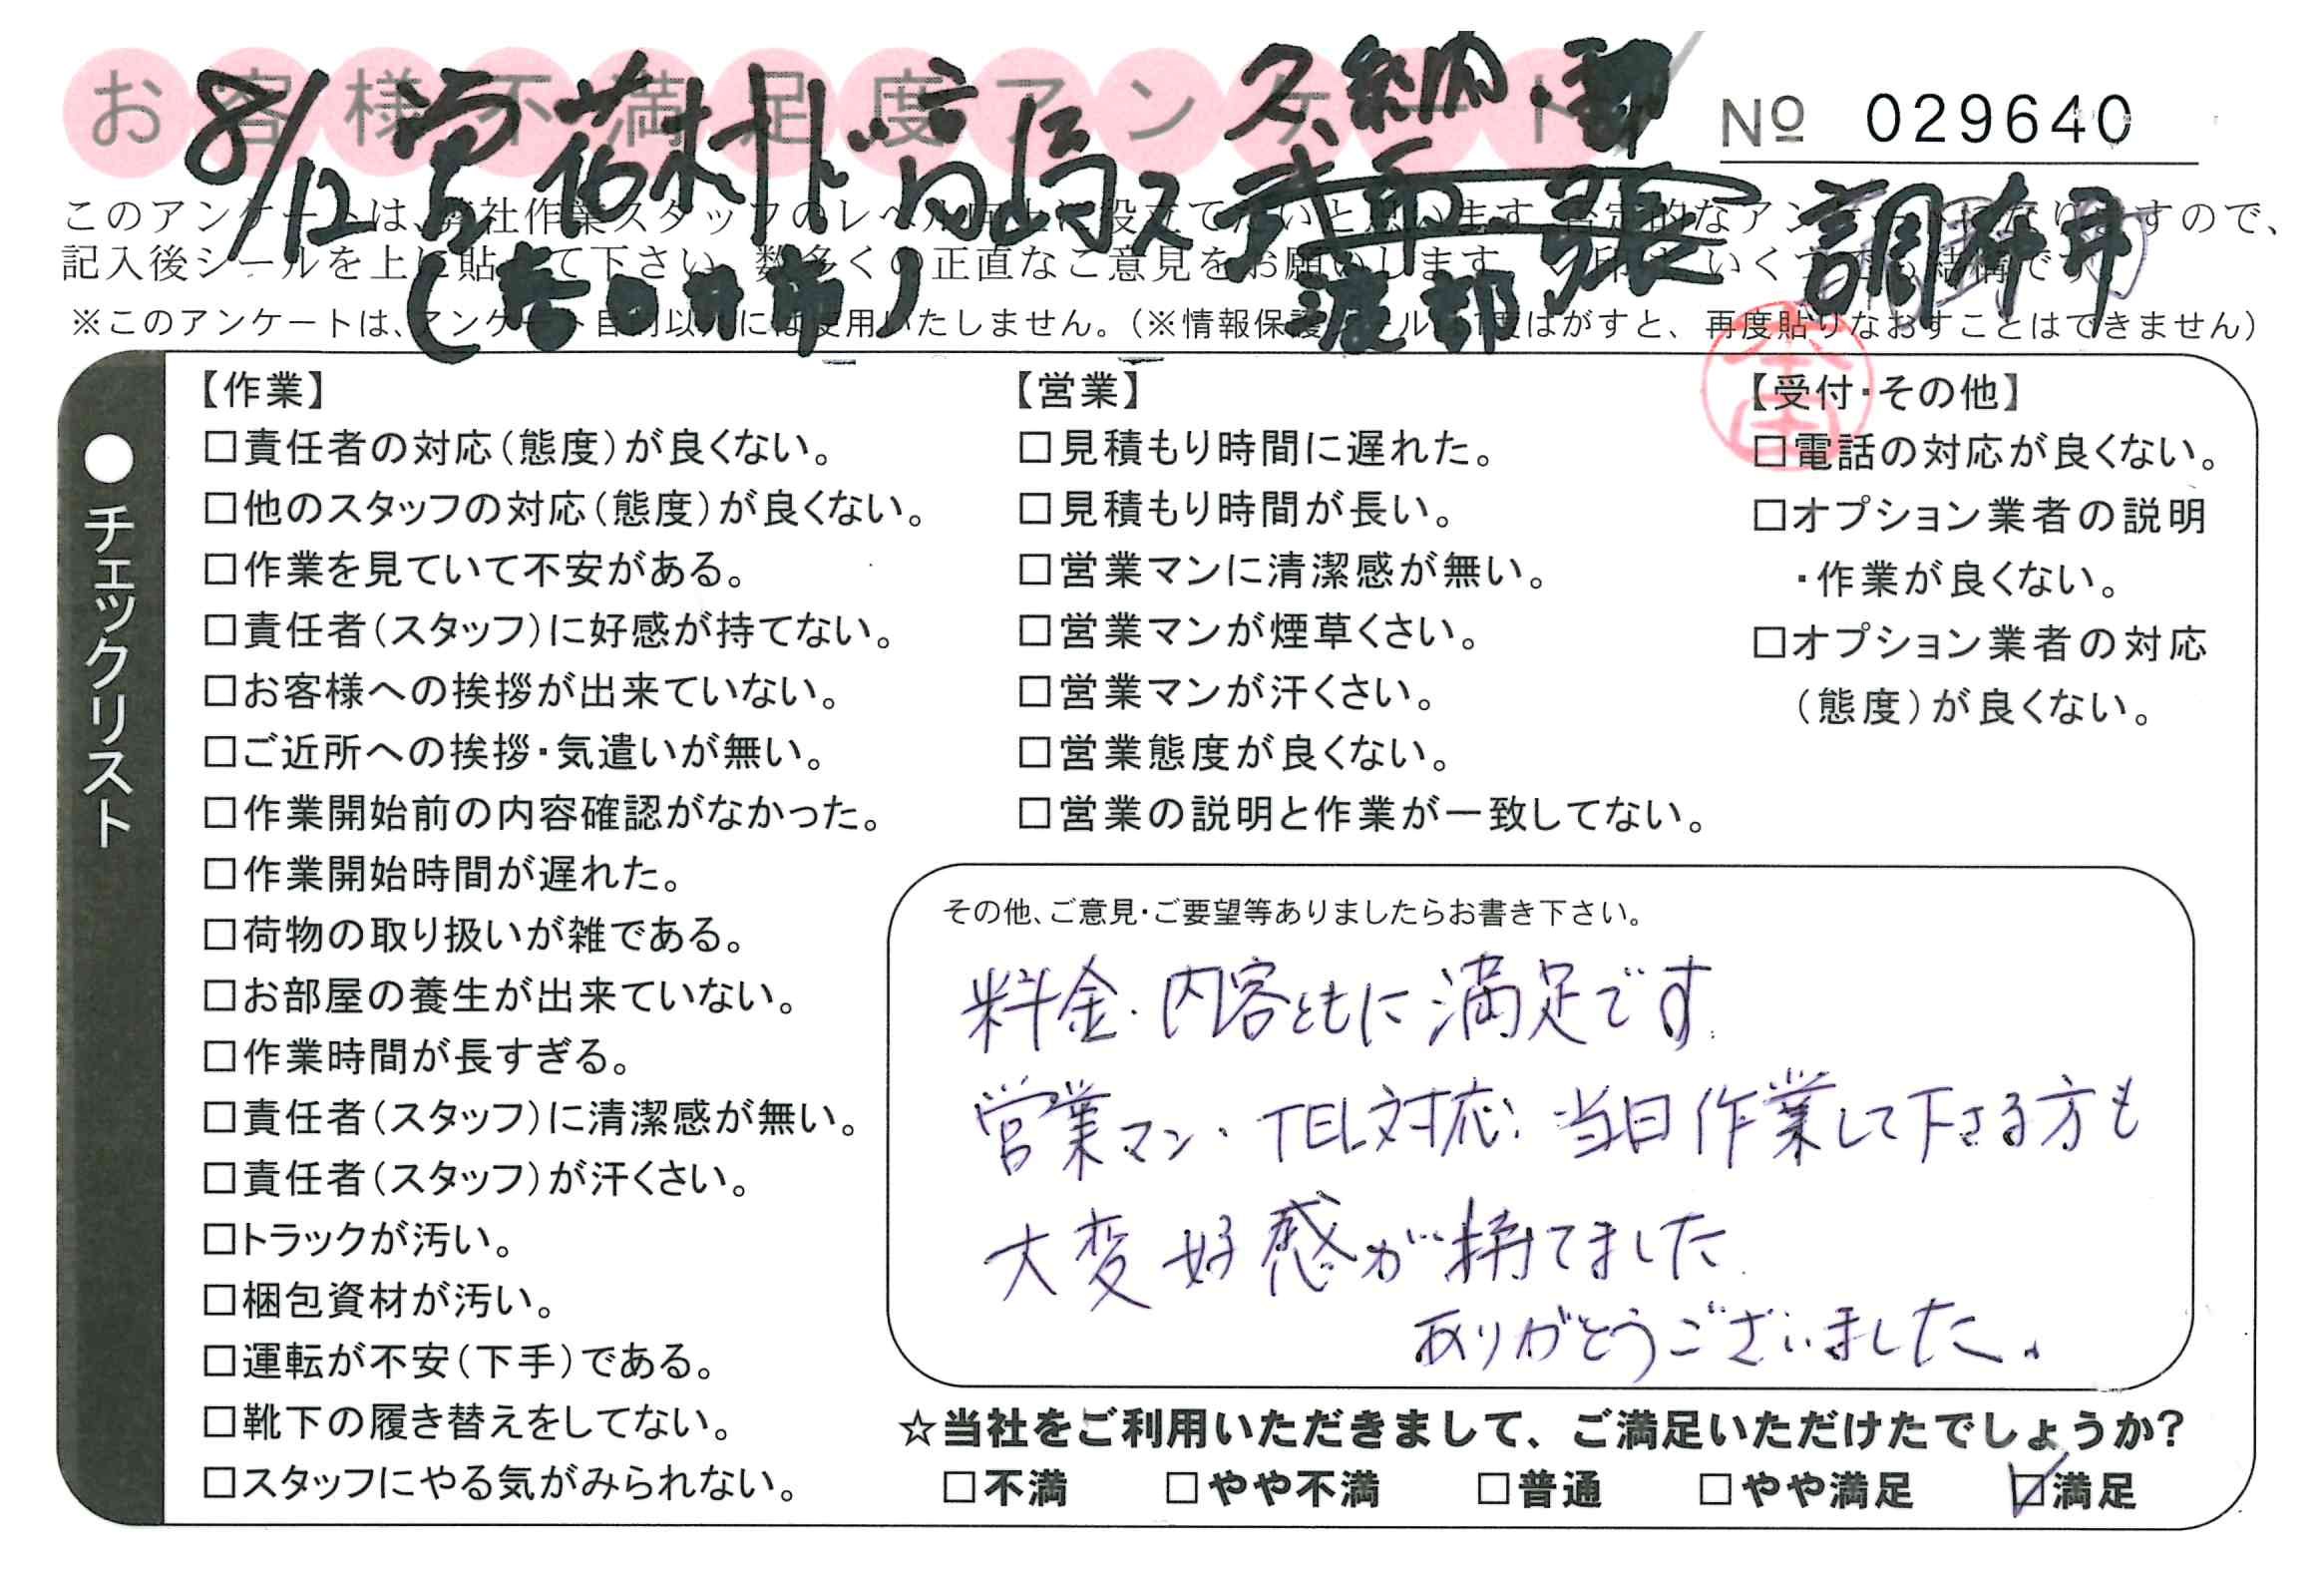 お客様不満足度アンケート
№ 029640
8/12
(春日井市)
久納
渡部
張
このアンケートは、
記入後シールを上に貼って下さい。数多くの正直なご意見をお願いします。
※このアンケートは、アンケート目的以外には使用いたしません。(※情報保護シールは1度はがすと、再度貼りなおすことはできません)
●チェックリスト
【作業】
□責任者の対応(態度)が良くない。
□他のスタッフの対応(態度)が良くない。
□作業を見ていて不安がある。
□責任者(スタッフ)に好感が持てない。
□お客様への挨拶が出来ていない。
□ご近所への挨拶・気遣いが無い。
□作業開始前の内容確認がなかった。
□作業開始時間が遅れた。
□荷物の取り扱いが雑である。
□お部屋の養生が出来ていない。
□作業時間が長すぎる。
□責任者(スタッフ)に清潔感が無い。
□責任者(スタッフ)が汗くさい。
□トラックが汚い。
□梱包資材が汚い。
□運転が不安(下手)である。
□靴下の履き替えをしてない。
□スタッフにやる気がみられない。
【営業】
□見積もり時間に遅れた。
□見積もり時間が長い。
□営業マンに清潔感が無い。
□営業マンが煙草くさい。
□営業マンが汗くさい。
□営業態度が良くない。
□営業の説明と作業が一致してない。
【受付・その他】
□電話の対応が良くない。
□オプション業者の説明
・作業が良くない。
□オプション業者の対応
(態度)が良くない。
その他、ご意見・ご要望等ありましたらお書き下さい。
料金・内容ともに満足です。
営業マン・TEL対応、当日作業して下さる方も
大変好感が持てました。
ありがとうございました。
☆当社をご利用いただきまして、ご満足いただけたでしょうか?
□不満 □やや不満 □普通 □やや満足 ☑満足